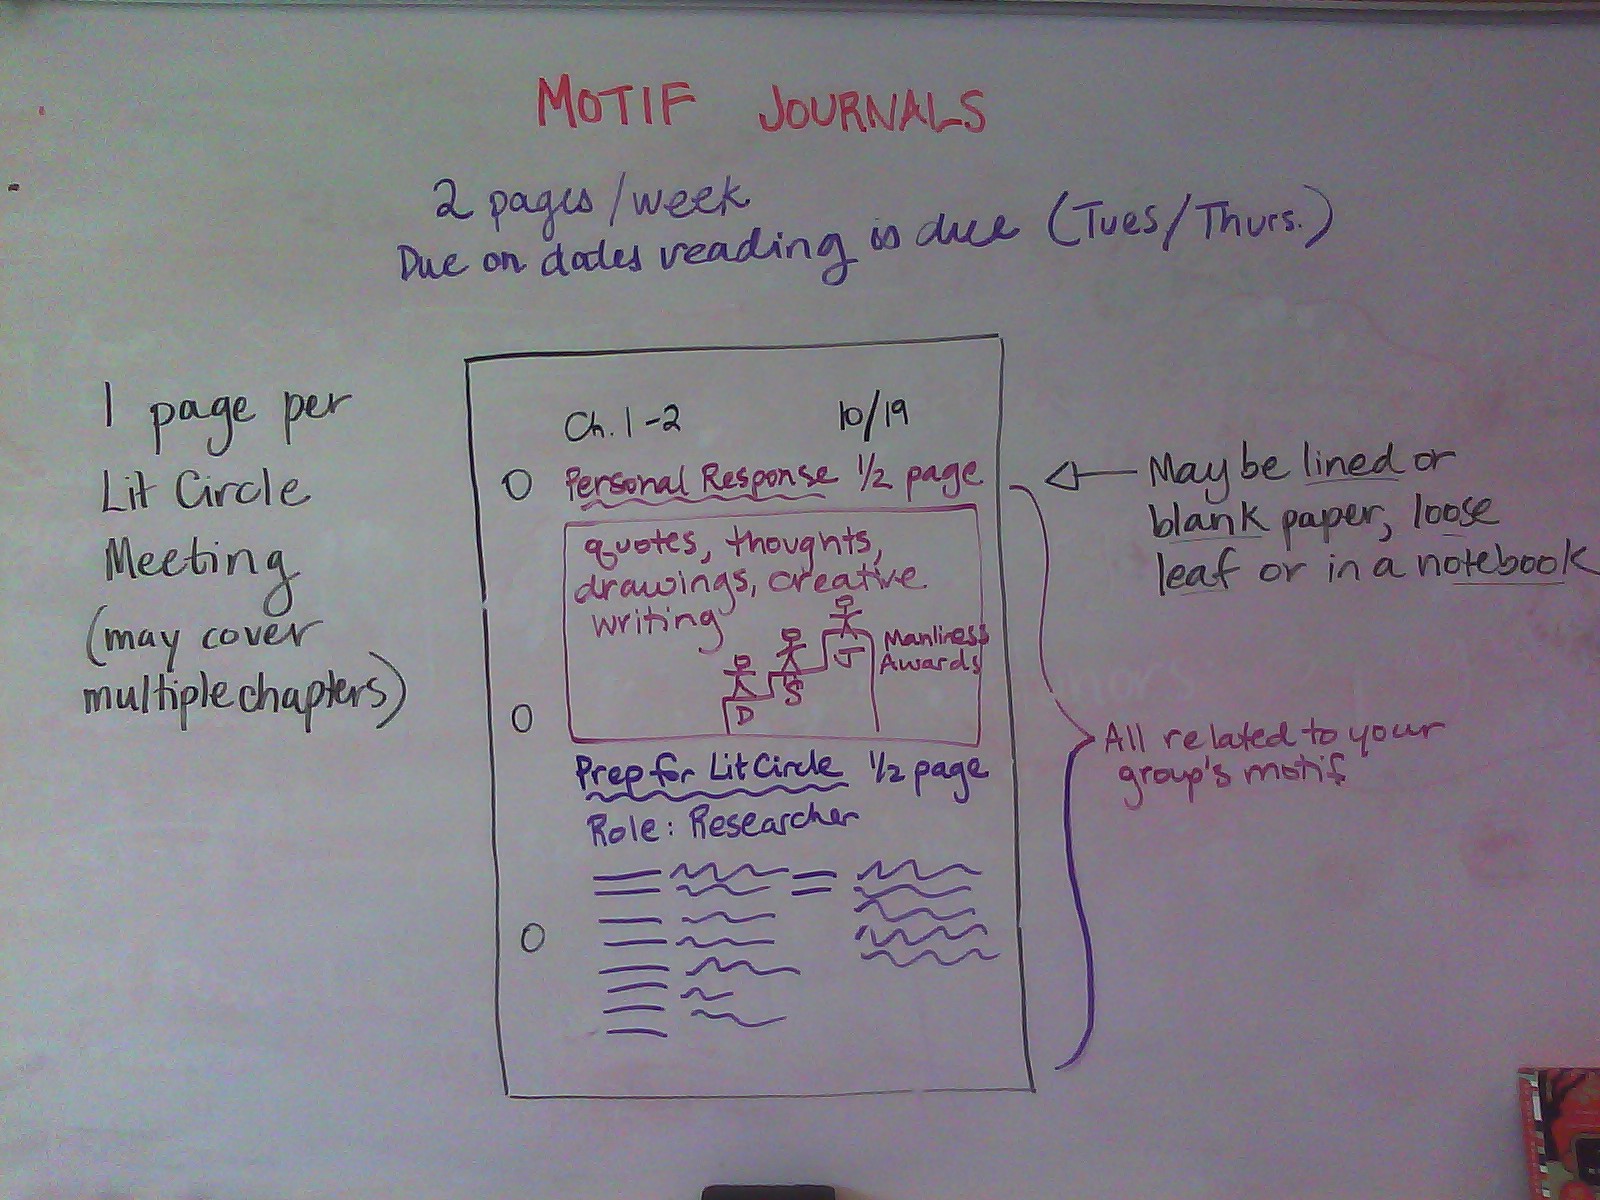 MOTIF JOURNALS
2 pages/week
Due on dates reading is due (Tues/Thurs.)
1 page per
Lit Circle
Meeting
(may cover
multiple chapters)
Ch. 1-2 10/19
Personal Response 1/2 page
quotes, thoughts,
drawings, creative
writing
Manliness
Awards
J
S
D
Prep for Lit Circle 1/2 page
Role: Researcher
May be lined or
blank paper, loose
leaf or in a notebook
All related to your
group's motif